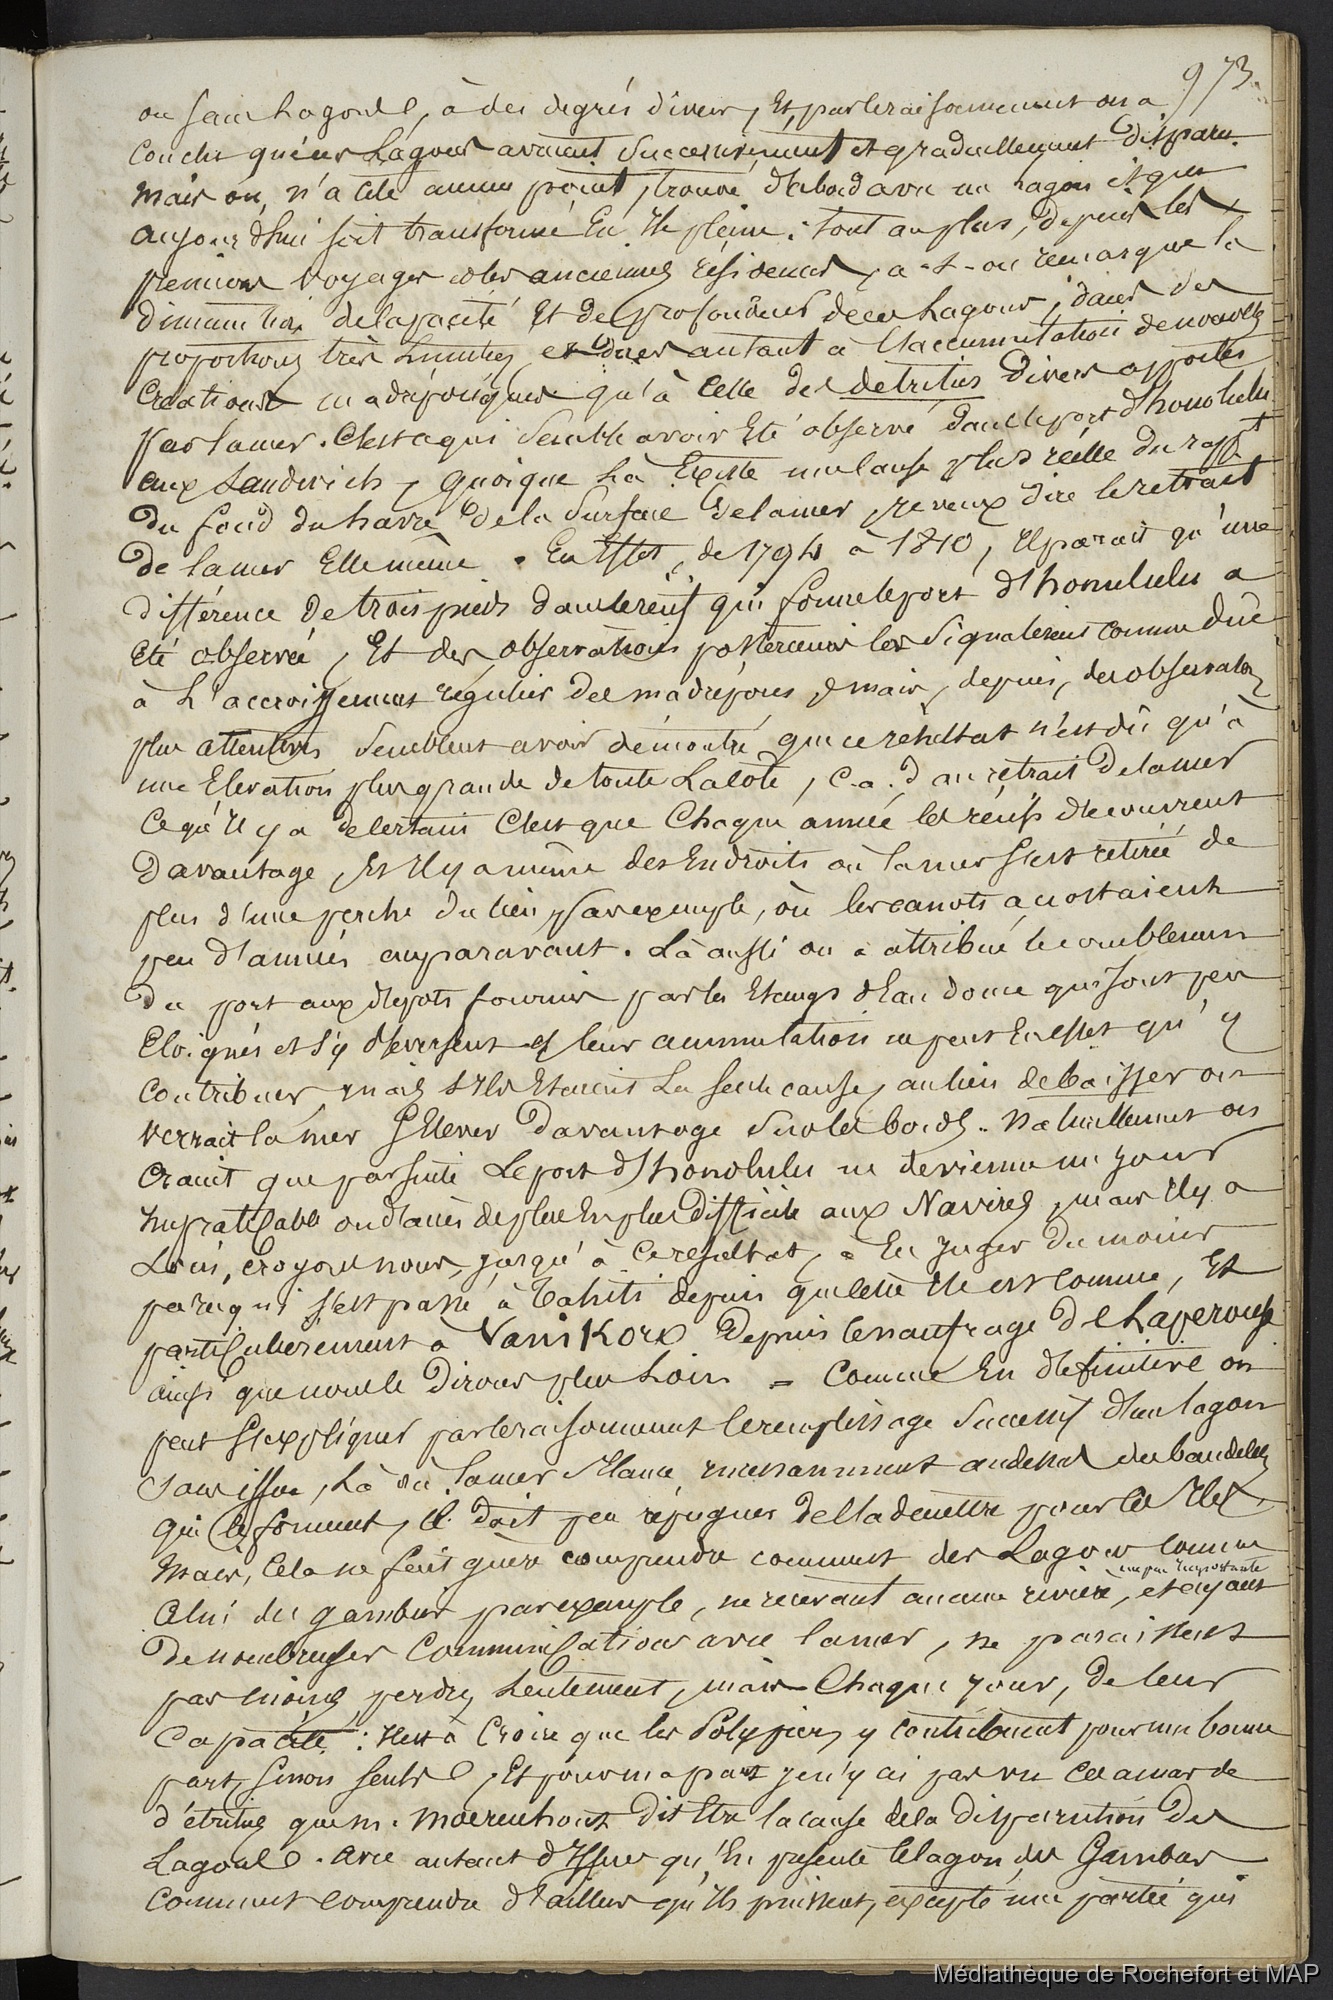 973.
ou sans lagons, à des degrés divers, Et, par le raisonnement on a
conclu que les Lagons avaient successivement et graduellement disparu.
Mais on n'a cité aucun point, trouvé d'abord avec un lagon et qui
aujourd'hui soit transformé En Ile pleine : tout au plus, depuis les
premiers voyages et les anciennes résidences, a-t-on remarqué la
diminution de capacité Et de profondeur de ces Lagons, dans des
proportions très limitées, et dues autant à l'accumulation de nouvelles
Créations madréporiques qu'à celle des detritus divers apportés
par la mer. C'est ce qui semble avoir Eté observé dans le port d'honolulu
aux Sandwich, quoique là Existe une cause plus réelle du rappt
du fond du havre de la surface de la mer, je veux dire le retrait
de la mer Elle même. En Effet, de 1794 à 1810, Il parait qu'une
différence de trois pieds dans le récif qui forme le port d'honolulu a
Eté observée, Et des observations postérieures les signalèrent comme due
à L'accroissement régulier des madrépores, mais, depuis, des observations
plus attentives semblent avoir démontré que ce résultat n'est dû qu'à
une Elévation plus grande de toute La côte, c.a.d au retrait de la mer
Ce qu'Il y a de certain C'est que Chaque année les récifs découvrent
davantage, Et Il y a même des Endroits où la mer s'est retirée de
plus d'une perche du lieu, par exemple, où les canots accostaient
peu d'années auparavant. Là aussi on a attribué le comblement
du port aux dépots fournis par les Etangs d'Eau douce qui sont peu
Eloignés et s'y déversent et leur accumulation ne peut En effet qu'y
contribuer, mais s'Ils Etaient La seule cause, au lieu de baisser on
verrait la mer S'Elever davantage sur les bords. Naturellement on
craint que par suite Le port d'honolulu ne devienne un jour
Impraticable ou d'accès de plus En plus difficile aux Navires, mais Il y a
Loin, croyons nous, jusqu'à ce résultat, à En juger du moins
par ce qui s'est passé à Tahiti depuis que cette Ile est connue, Et
particulièrement à Vanikoro depuis le naufrage de Laperouse
ainsi que nous le dirons plus Loin = Comme En définitive on
peut s'expliquer par le raisonnement le remplissage successif d'un lagon
sans issue, Là où la mer s'Elance incessamment au dessus des bandelettes
qui le forment, Il doit peu répugner de l'admettre pour ces Iles.
Mais, Cela ne fait guère comprendre comment des Lagons comme
celui des gambier par exemple, ne recevant aucune rivière un peu Importante, et ayant
de nombreuses Communications avec la mer, ne paraissent
pas moins perdre lentement, mais Chaque jour, de leur
Capacité : Il est à Croire que les Polypiers y contribuent pour une bonne
part, sinon seuls, Et pour ma part je n'y ai pas vu ces amas de
détritus que M. Moerenhout dit Etre la cause de la disparution des
Lagons. Avec autant d'Issues qu'En présente le lagon des Gambier
comment comprendre d'ailleurs qu'Ils puissent, excepté une partie qui